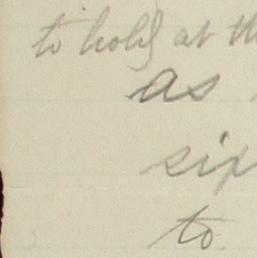 to hold at th
as
six
to